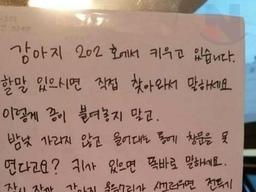 강아지 202호에서 키우고 있습니다.
할말 있으시면 직접 찾아와서 말하세요
이렇게 종이 붙여놓지 말고.
밤낮 가리지 않고 울어대는 통에 창문을 못
연다고요? 귀가 있으면 똑바로 말하세요.
강아지 울음소리가